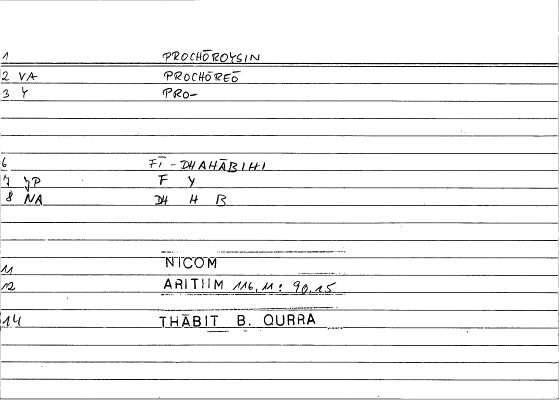 1 PROCHŌROYSIN
2 VA PROCHŌREŌ
3 Y PRO-
6 FĪ-DHAHĀBIHI
7 YP F Y
8 NA DH H B
11 NICOM
12 ARITIIM 116,11: 90,15
14 THĀBIT B. QURRA